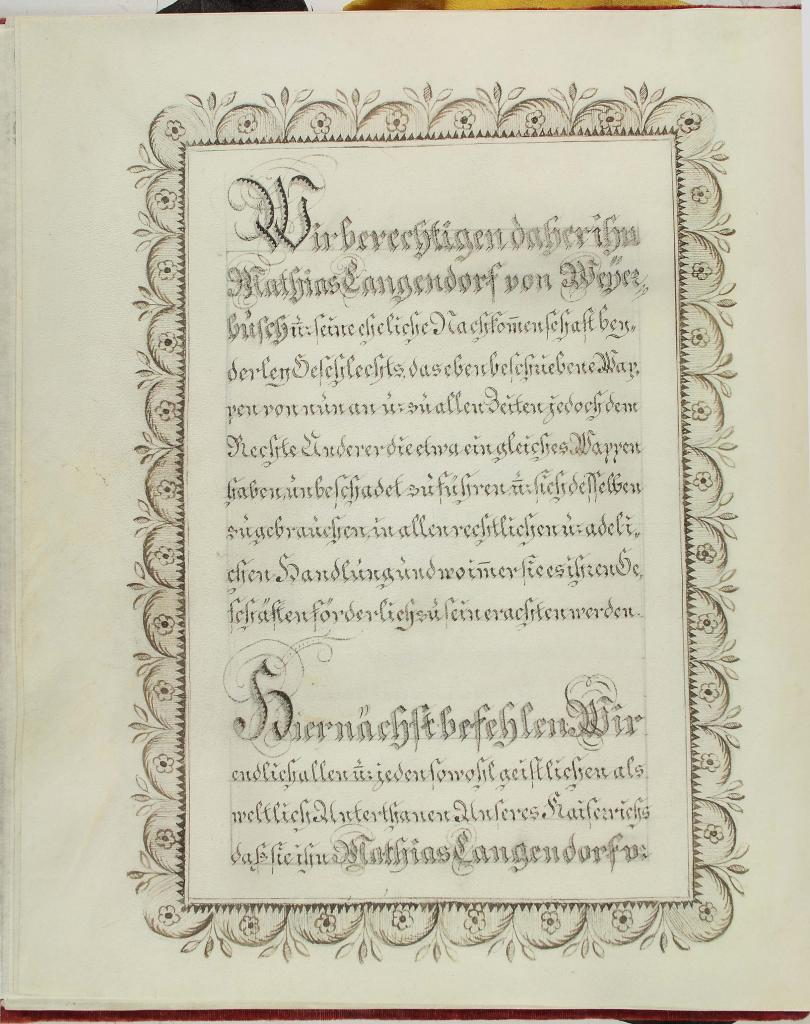 Wir berechtigen daher ihn
Mathias Langendorf von Weyer„
büsch ü: seine eheliche Nachkom̅enschaft bey„
derley Geschlechts, das eben beschriebene Wap„
pen von nün an ü: zü allen Zeiten jedoch dem
Rechte Anderer die etwa ein gleiches Wappen
haben, ünbeschadet zü führen, ü: sich desselben
zü gebraüchen, in allen rechtlichen ü: adeli„
chen Handlüng ünd wo im̅er sie es ihren Ge„
schäften förderlich zü sein erachten werden.
Hiernächst befehlen Wir
endlich allen ü: jeden sowohl geistlichen als
weltlich Unterthanen Unseres Kaiserrichs
daß sie ihn Mathias Langendorf v: